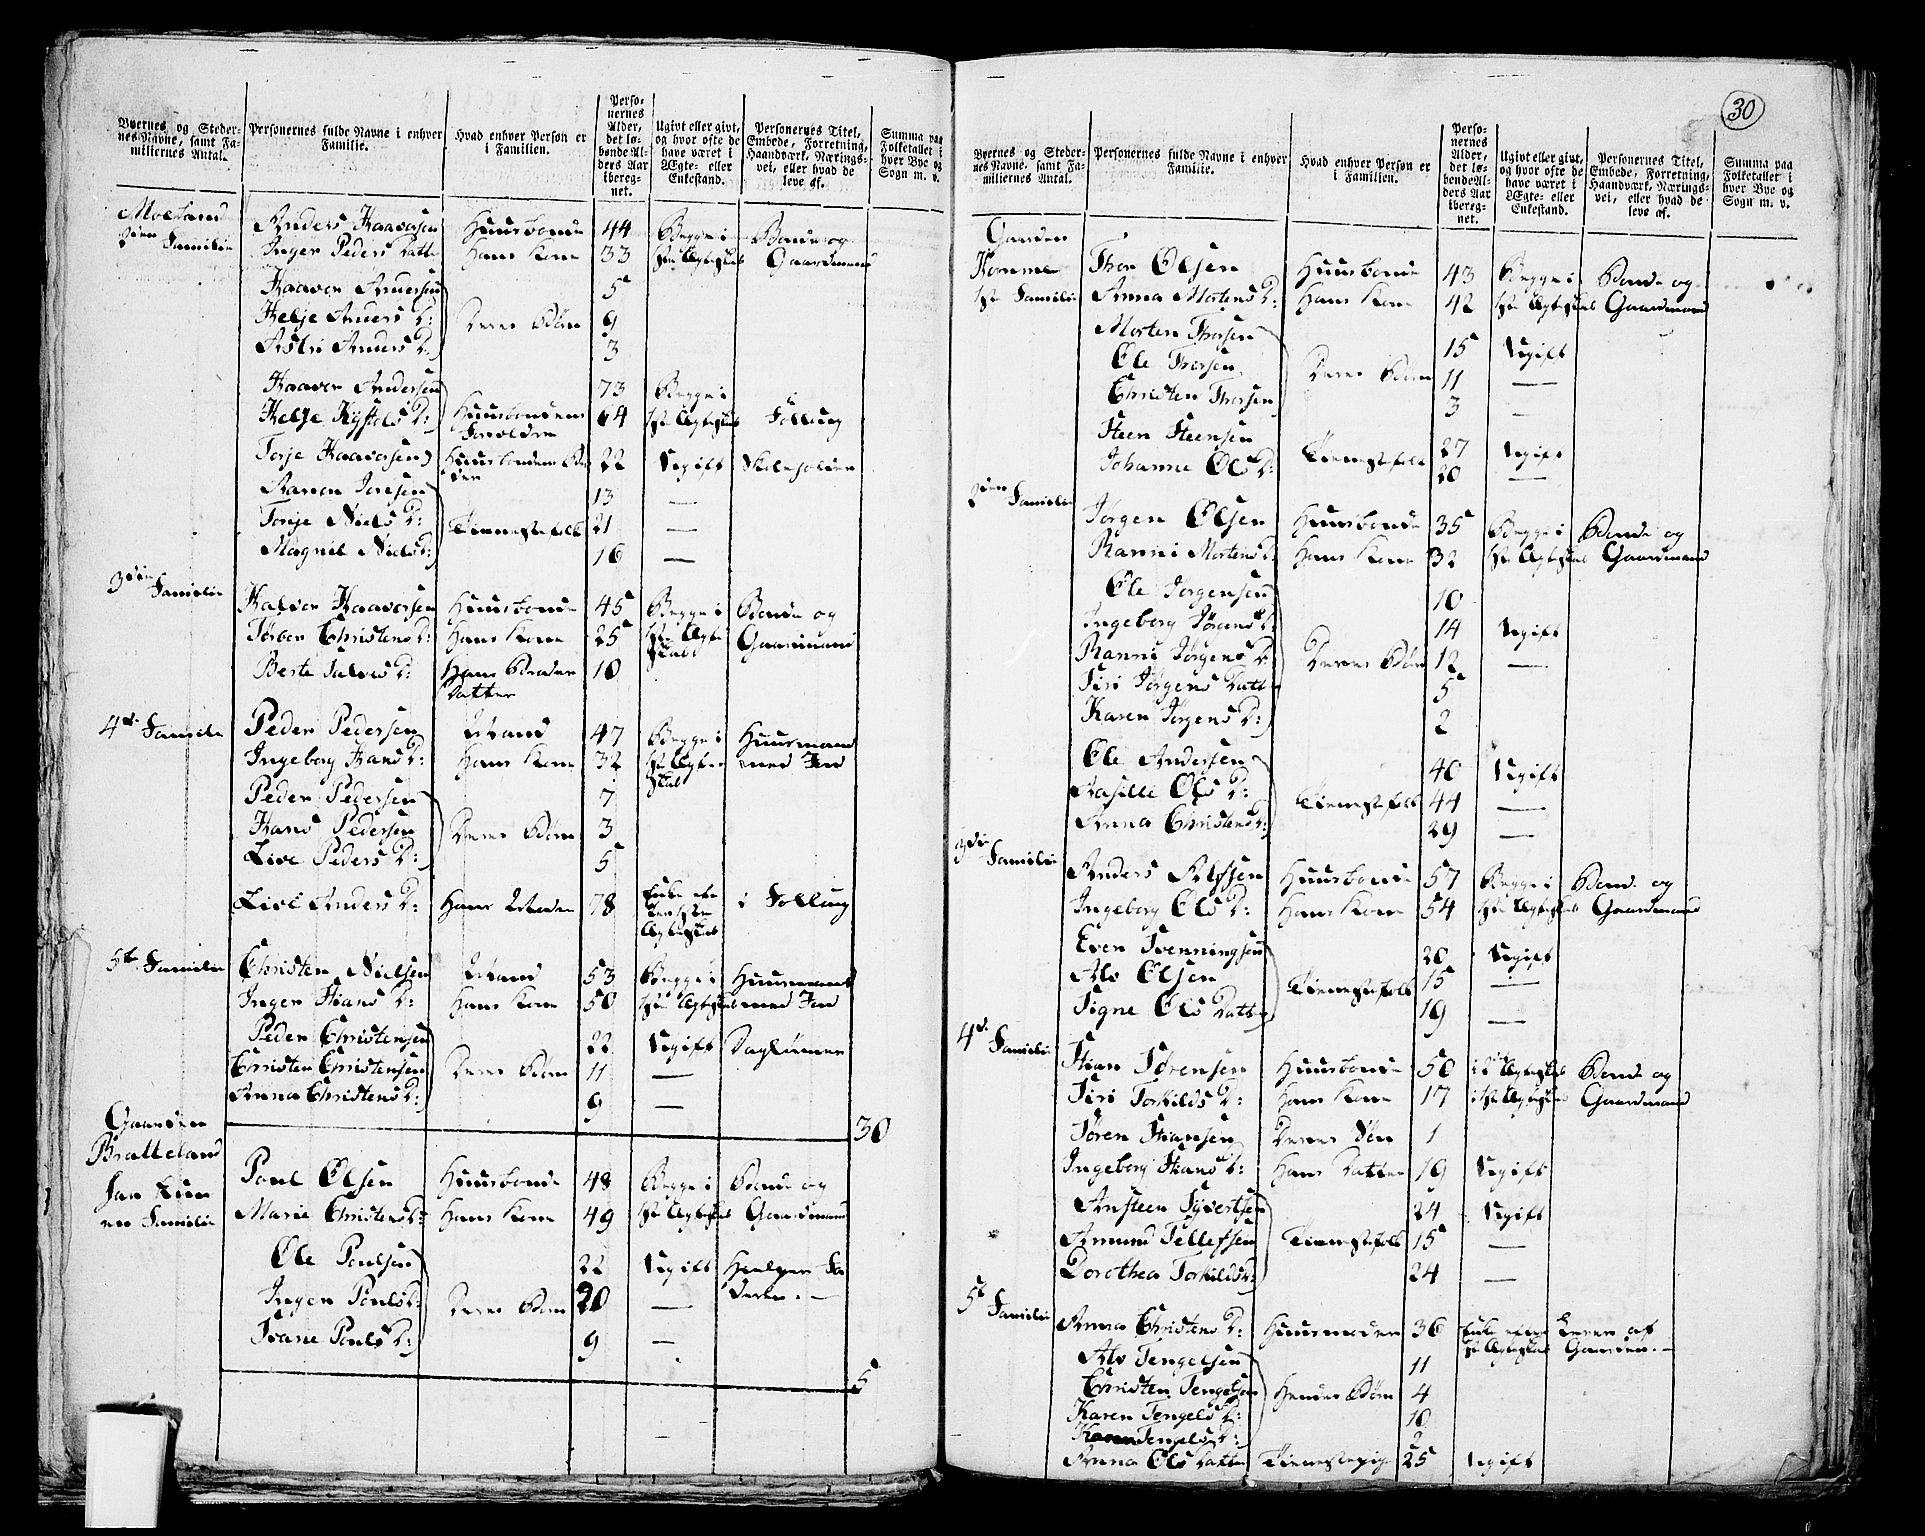 Byernes og Stedernes Navne, samt Familiernes Antal.
Personernes fulde Navne i enhver Familie.
Hvad enhver Person er i Familien.
Personernes Alder, det løbende Alders Aar iberegnet.
Ugivt eller givt, og hvor ofte de have været i Ægte- eller Enkestand.
Personernes Titel, Embede, Forretning, Haandværk, Næringsvei, eller hvad de leve af.
Summa paa Folketallet i hver Bye og Sogn m. v.
Moeland
2den Familie Anders Haavorsen Huusbonde 44 Begge i Bonde og
Inger Peders Datter Hans Kone 33 1ste Ægteskab Gaardmand
Haavor Andersen 5
Helje Anders D: Deres Børn 9
Astri Anders D: 3
Haavor Andersen 73 Begge i
Helje Kystols D: Huusbondens Foreldre 64 1ste Ægteskab
Torje Haavorsen Huusbondens Broder 22 Ugift
Aanon Joresen 13 —
Torije Niels D: Tienestefolk 21 —
Magnil Niels D: 16 —
3die Familie
Halvor Haavorsen Huusbonde 45 Begge i Bonde og
Jørber Christens D: Hans Kone 25 1ste Ægteskab Gaardmand
Berte Salves D: Hans Broder Datter 10
4de Familie Peder Pedersen Mand 47 Begge i Huusmand
Ingeborg Hans D: Hans Kone 32 1ste Ægteskab med Jord
Peder Pedersen 7
Hans Pedersen Deres Børn 3
Live Peders D: 5
Live Anders D: Hans Moder 78 Enke efter Ægteskab
5te Familie Christen Nielsen Mand 53 Begge i Huusmand
Inger Stians D: Hans Kone 50 1ste Ægteskab med Jord
Peder Christensen 22 Ugift Dagleiener
Christen Christensen Deres Børn 11 —
Anna Christens D: 9 —
30
Gaarden
Bratteland
har kun en Familie
Poul Olsen Huusbonde 48 Begge i Bonde og
Marie Christens D: Hans Kone 49 1ste Ægteskab Gaardmand
Ole Poulsen 22 Ugift Hielper Faderen. —
Inger Pouls D: Deres Børn 20 —
Tvane Pouls D: 9 —
5
30
Byernes og Stedernes Navne, samt Familiernes Antal.
Personernes fulde Navne i enhver Familie.
Hvad enhver Person er i Familien.
Personernes Alder, det løbende Alders Aar iberegnet.
Ugivt eller givt, og hvor ofte de have været i Ægte- eller Enkestand.
Personernes Titel, Embede, Forretning, Haandværk, Næringsvei, eller hvad de leve af.
Summa paa Folketallet i hver Bye og Sogn m. v.
Gaarden
Homme Thor Olsen Huusbonde 43 Begge i Bonde og
1ste Familie Anna Mortens D: Hans Kone 42 1ste Ægteskab Gaardmand
Morten Thorsen 15 Ugift
Ole Thorsen Deres Børn 11 —
Christen Thorsen 3 —
Steen Steensen Tienestefolk 27 Ugift
Johanne Ols D: 20 —
2den Familie
Jørgen Olsen Huusbonde 35 Begge i Bonde og
Ranni Mortens D: Hans Kone 32 1ste Ægteskab Gaardmand
Ole Jørgensen 10
Ingeborg Jørgens D: 14 Ugift
Ranni Jørgens D: Deres Børn 12 —
Siri Jørgens Datter 5
Karen Jørgens D: 2
Ole Andersen 40 Ugift
Aasille Ols D: Tienestefolk 44 —
Anna Christens D: 29 —
3die Familie
Anders Alfsen Huusbonde 57 Begge i Bonde og
Ingeborg Ols D: Hans Kone 54 1ste Ægteskab Gaardmand
Even Svenningsen 20 Ugift
Alv Olsen Tienestefolk 15 —
Signe Ols Datter 19 —
4de Familie
Stian Sørensen Huusbonde 50 i Ægteskab Bonde og
Siri Torkilds D: Hans Kone 17 i 1ste Ægteskab Gaardmand
Søren Stiansen Deres Søn 1
Ingeborg Stians D: Hans Datter 19 Ugift
Ansteen Syvertsen 24 Ugift
Amund Tellefsen Tienestefolk 15 —
Dorothea Torkilds D: 24 —
5te Familie
Anna Christens D: Huusmoder 36 Enke efter 1ste Ægteskab Lever af Gaarden. —
Alv Tengelsen 11
Christen Tengelsen Hendes Børn 4
Karen Tengels D: 10
Karen Tengels D: 2
Anna Ols Datter Tienestepige 25 Ugift